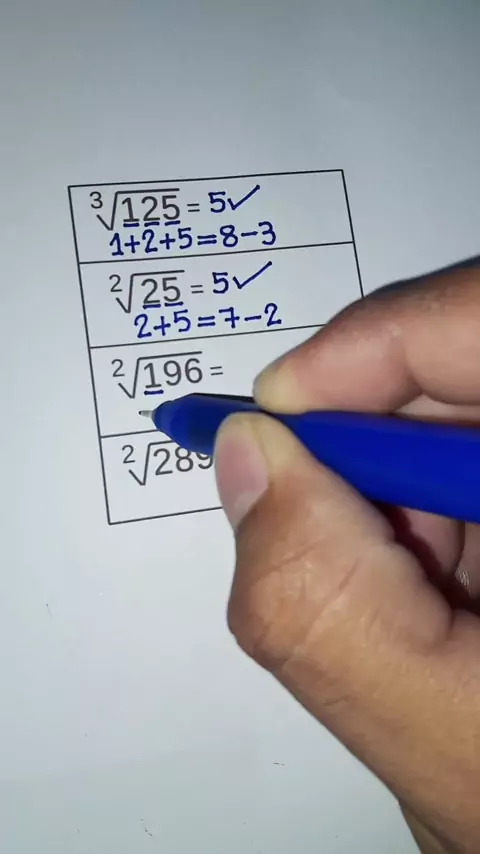 ³√125 = 5✓
1+2+5=8-3
²√25 = 5✓
2+5=7-2
²√196 =
²√289